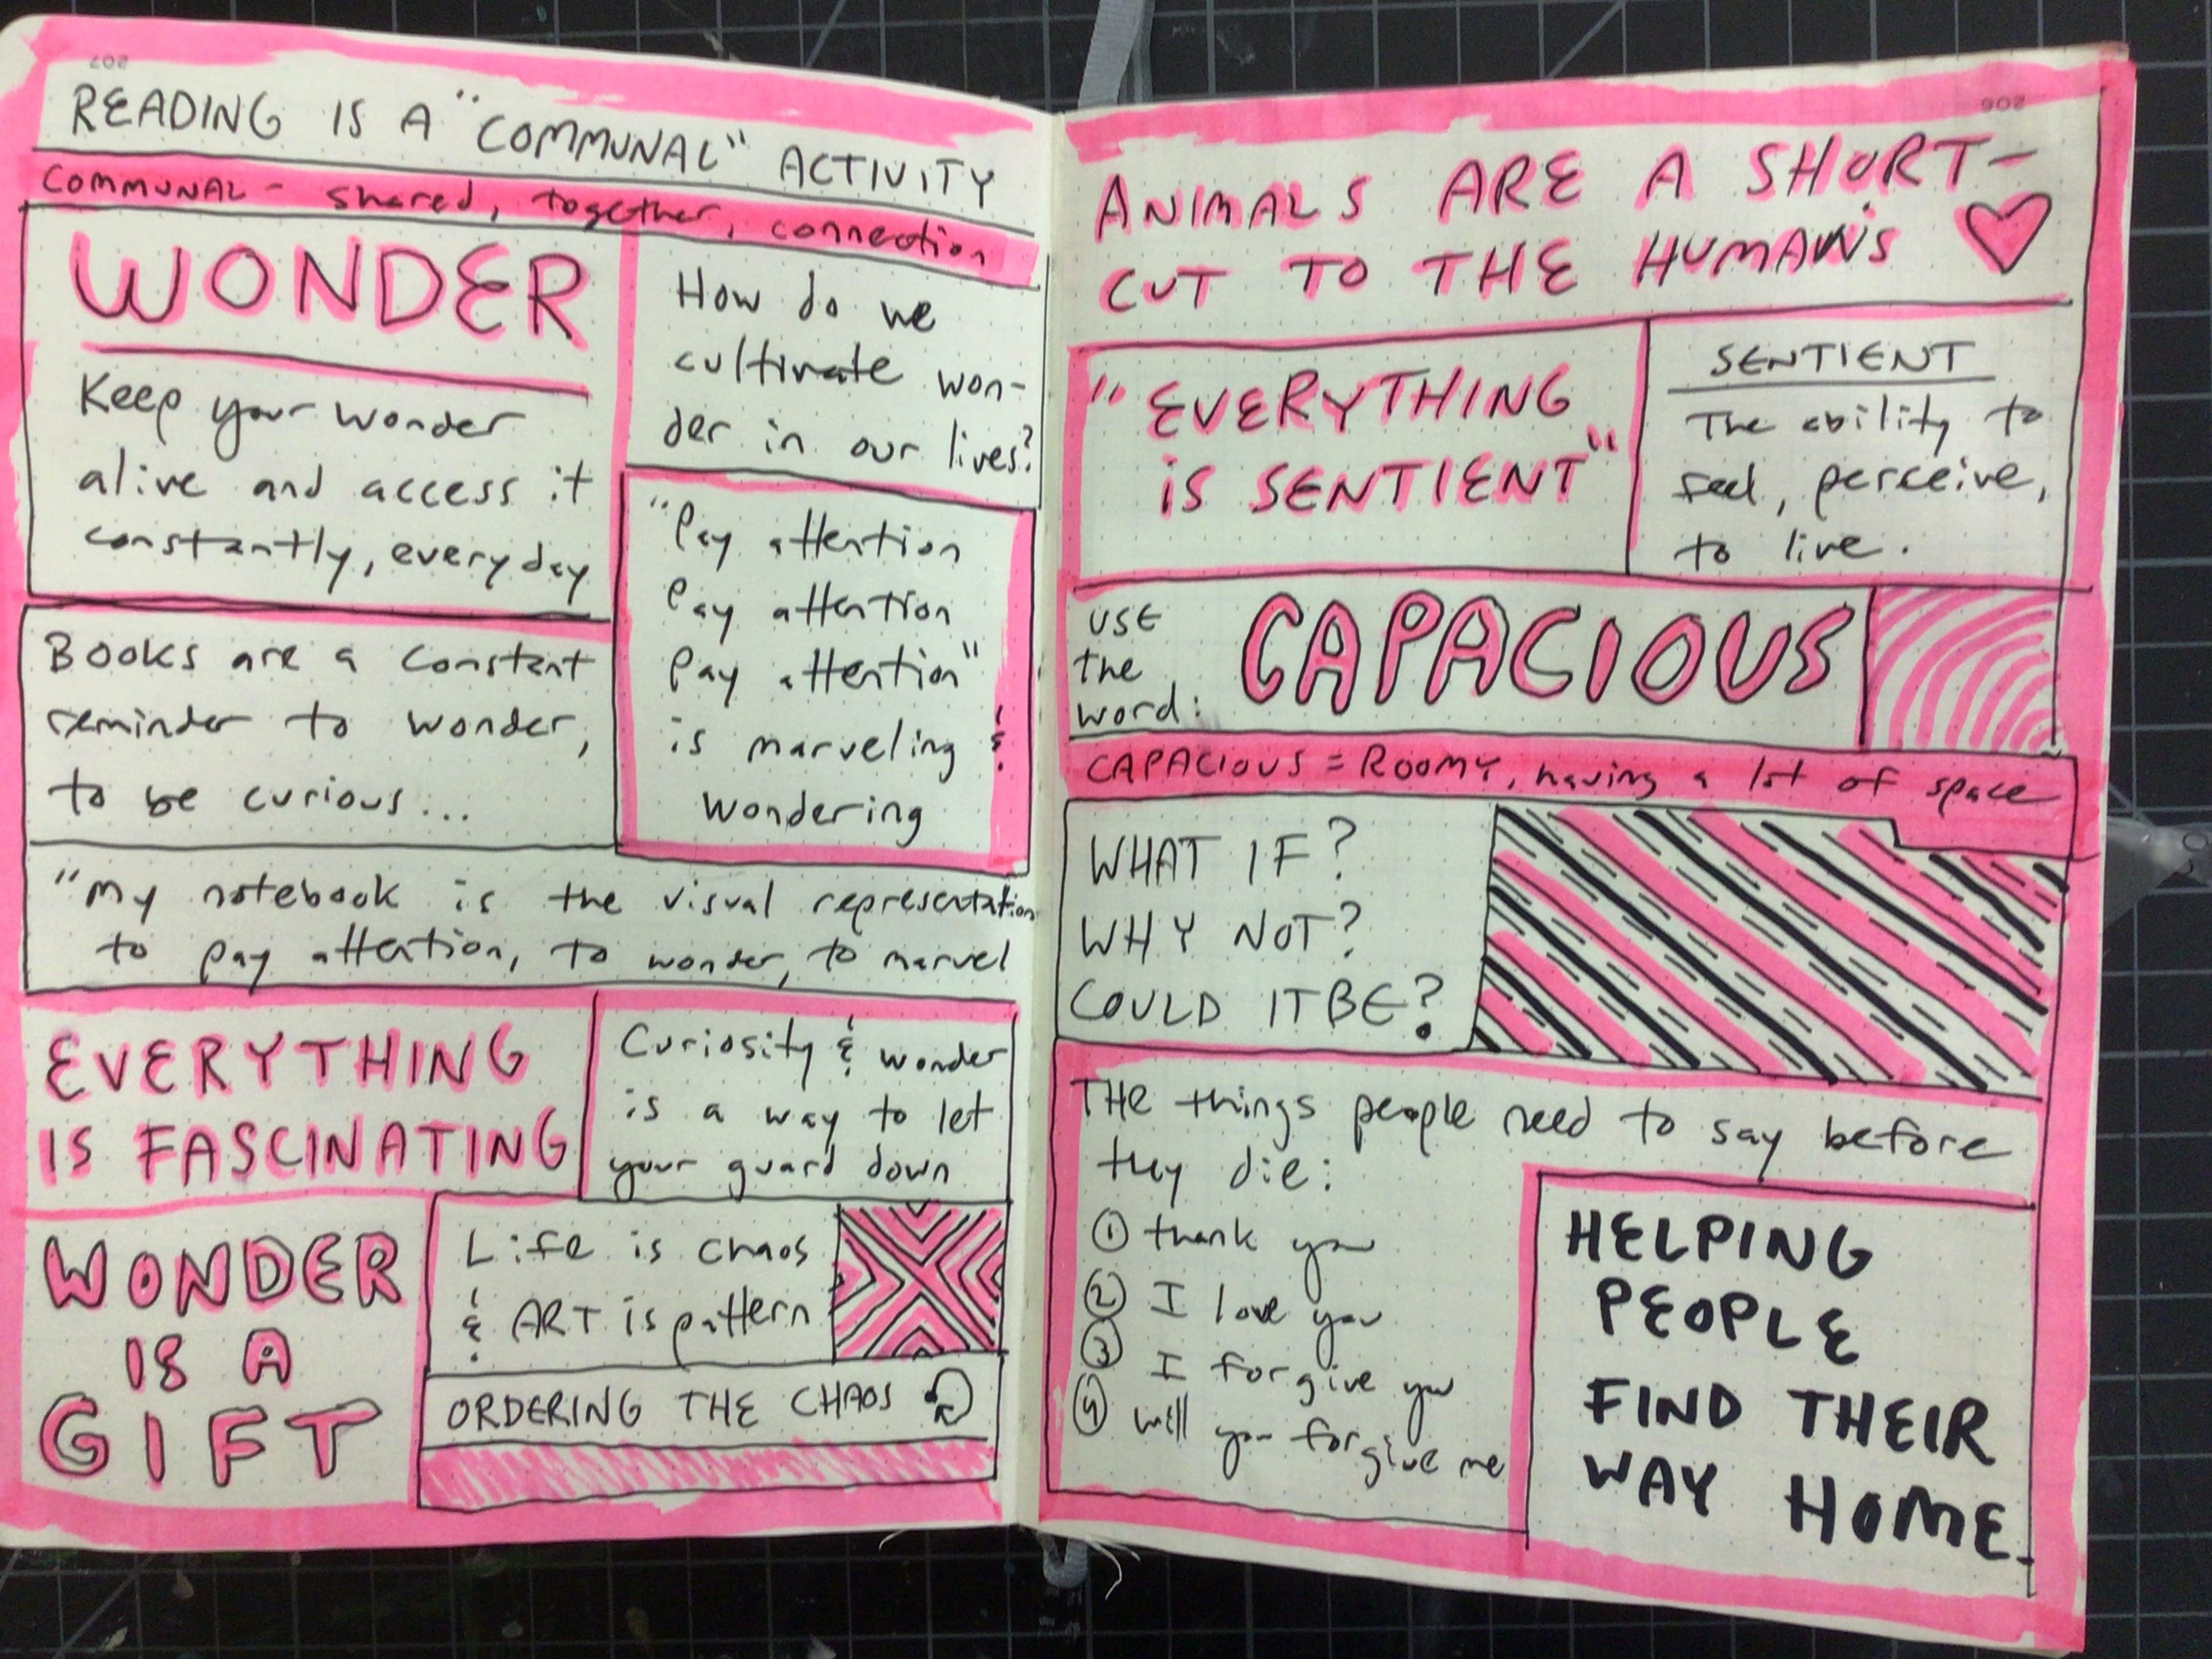 207
READING IS A "COMMUNAL" ACTIVITY
COMMUNAL - shared, together, connection
WONDER
Keep your wonder
alive and access it
constantly, everyday
How do we
cultivate won-
der in our lives?
"Pay attention
Pay attention
Pay attention"
is marveling &
wondering
Books are a constant
reminder to wonder,
to be curious...
"My notebook is the visual representation
to pay attention, to wonder, to marvel
EVERYTHING
IS FASCINATING
Curiosity & wonder
is a way to let
your guard down
WONDER
IS A
GIFT
Life is chaos
& ART is pattern
ORDERING THE CHAOS
206
ANIMALS ARE A SHORT-
CUT TO THE HUMANS
"EVERYTHING
IS SENTIENT"
SENTIENT
The ability to
feel, perceive,
to live.
USE
the
word:
CAPACIOUS
CAPACIOUS = ROOMY, having a lot of space
WHAT IF?
WHY NOT?
COULD IT BE?
THE things people need to say before
they die:
① thank you
② I love you
③ I forgive you
④ will you forgive me
HELPING
PEOPLE
FIND THEIR
WAY HOME.